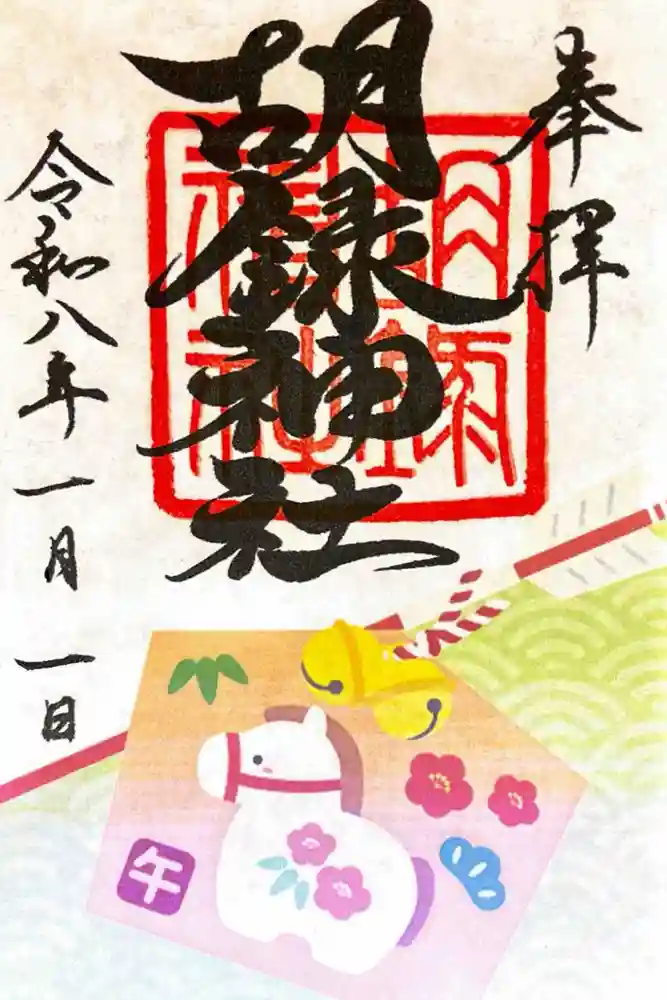 奉拝
胡録神社
令和八年一月一日
胡録
神社
午